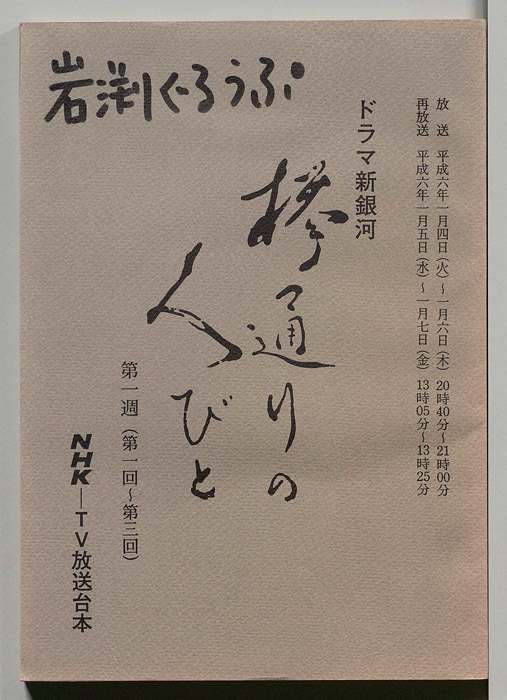 岩渕ぐろうぷ
放　送　平成六年一月四日（火）～一月六日（木）　20時40分～21時00分
再放送　平成六年一月五日（水）～一月七日（金）　13時05分～13時25分
ドラマ新銀河
欅通りの
人びと
第一週（第一回～第三回）
NHK―TV放送台本